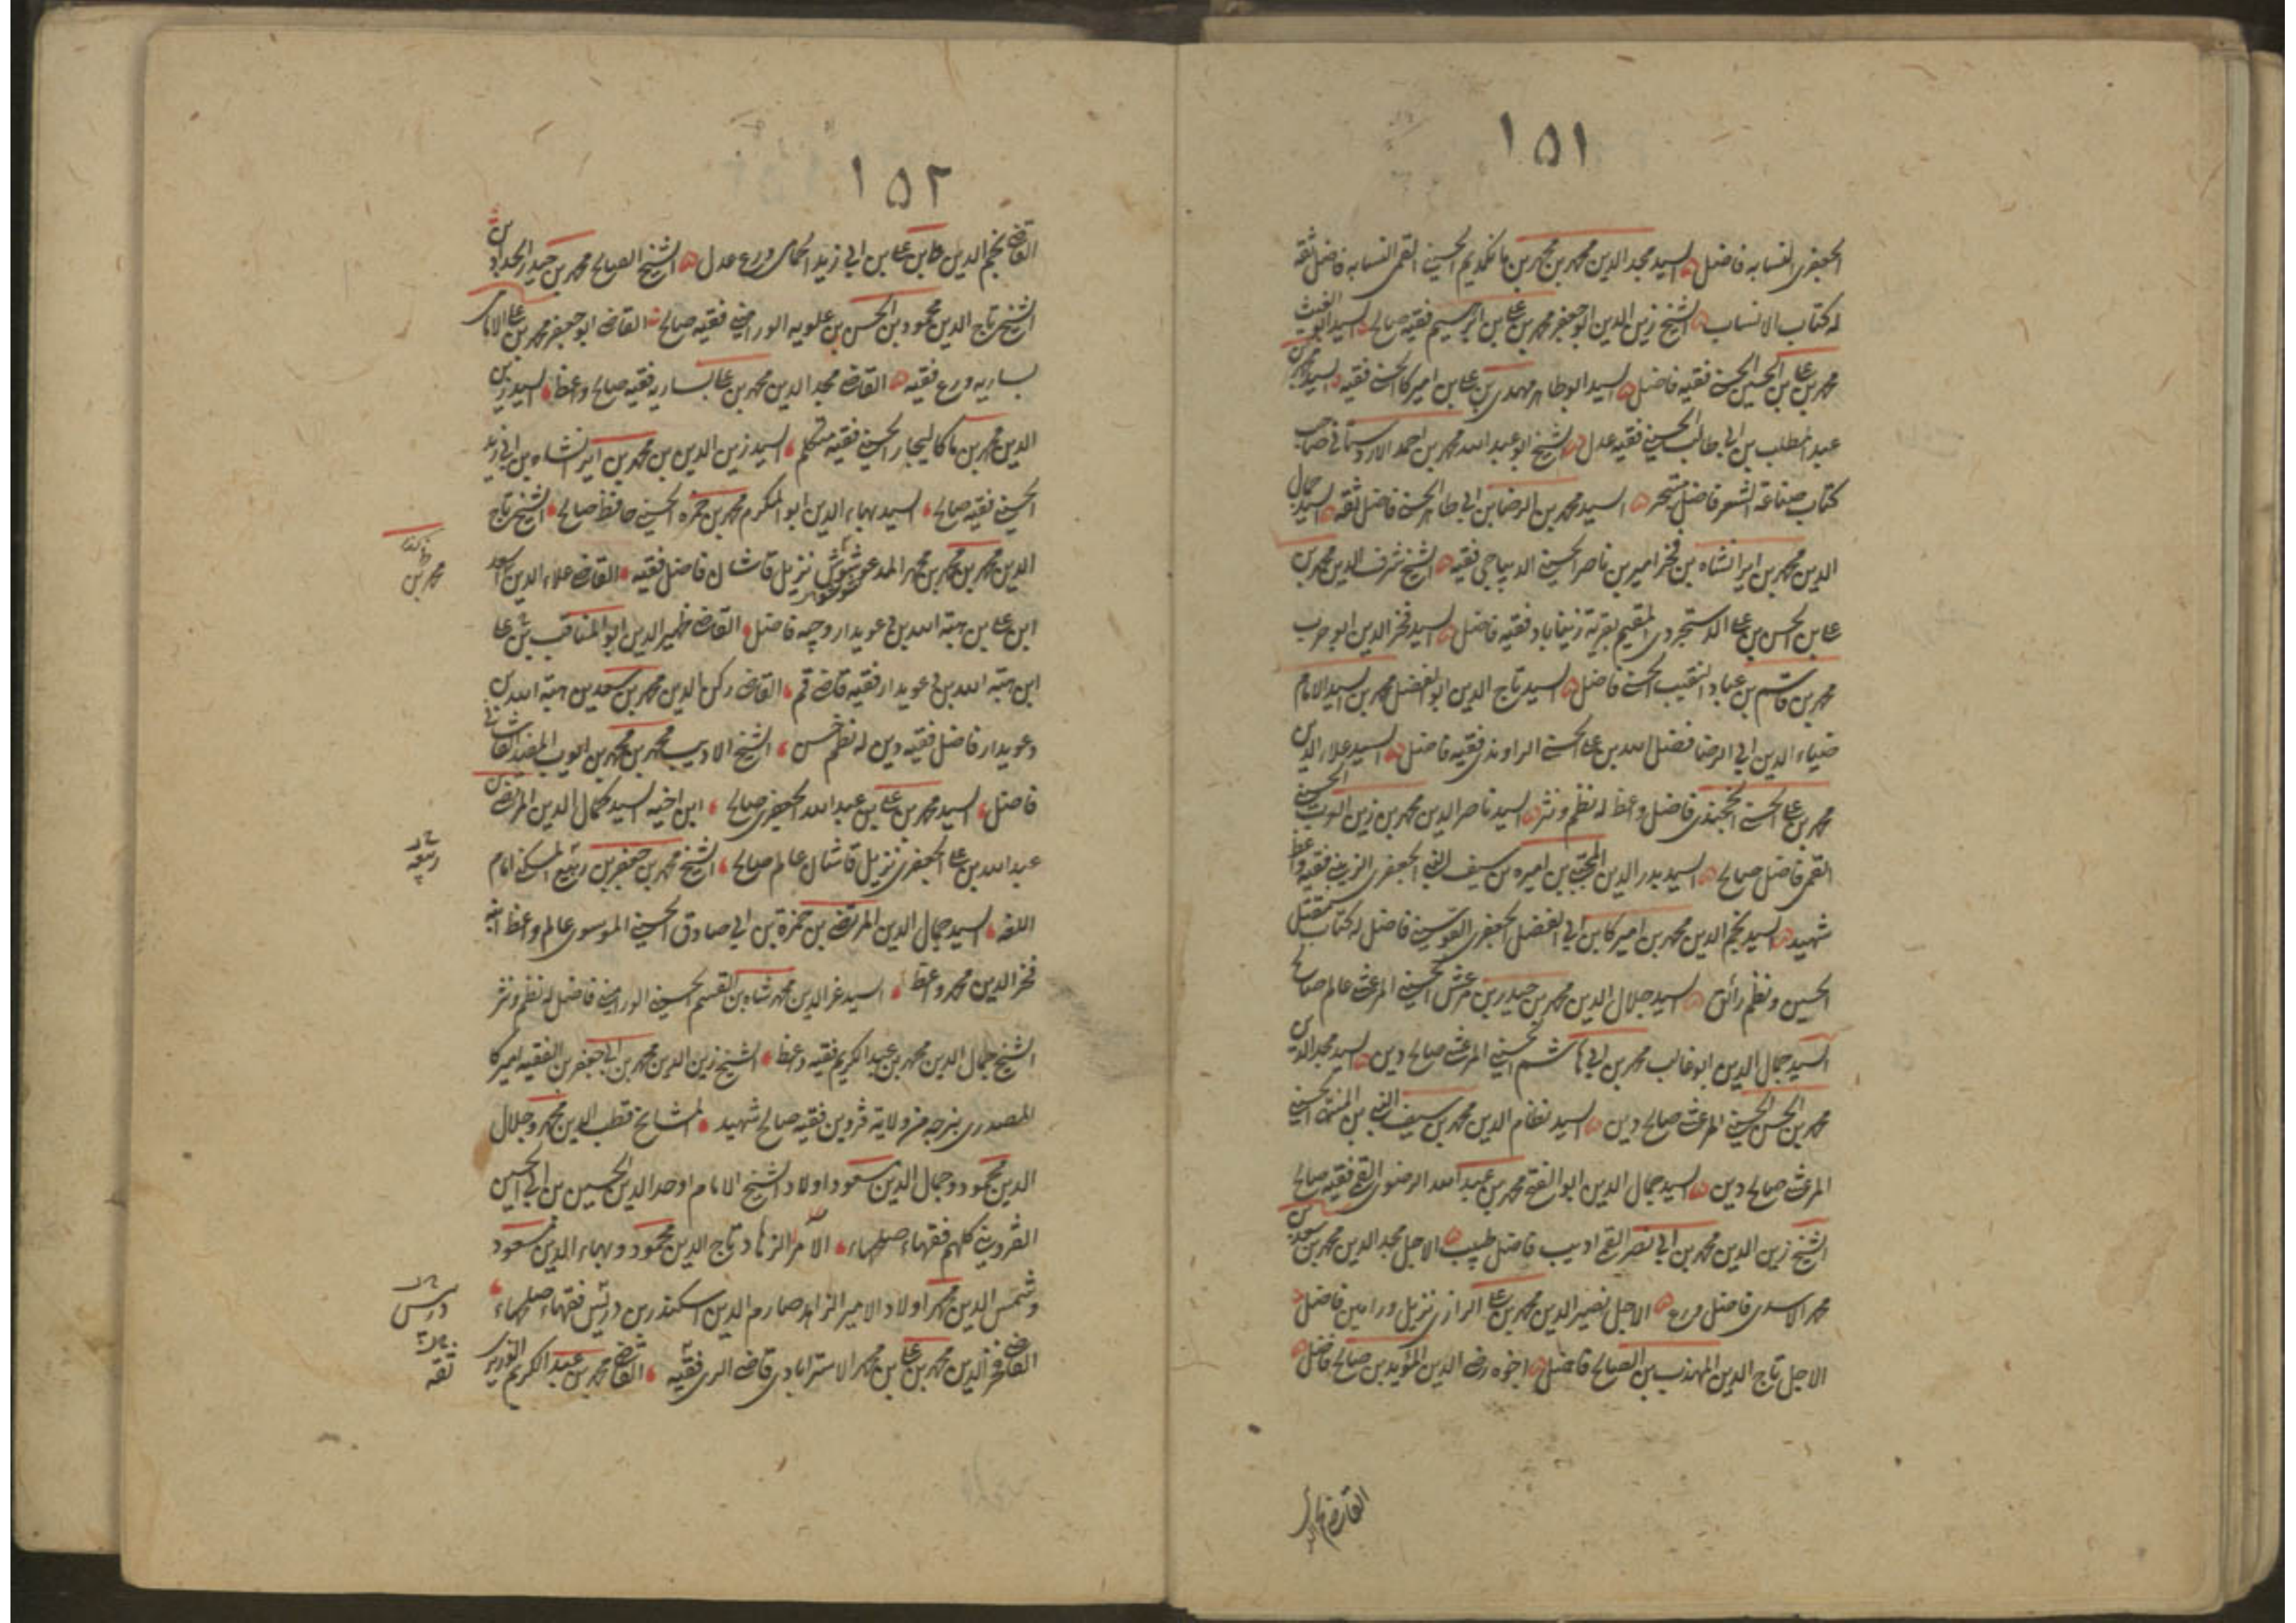 ١٥١
الجعفری النسابه فاضل السید مجد الدین محمد بن محمد بن مانکدیم الحسینی القمی النسابه فاضل ثقة
له کتاب الانساب الشیخ زین الدین ابو جعفر محمد بن علی بن ابرهیم فقیه صالح السید ابو الغیث
محمد بن علی بن الحسین الحسنی فقیه فاضل السید ابو طاهر مهدی بن علی بن امیرکا الحسنی فقیه السید محمد بن
عبد المطلب بن ابی طالب الحسینی فقیه عدل الشیخ ابو عبد الله محمد بن احمد الاردستانی صاحب
کتاب صناعة الشعر فاضل متبحر السید محمد بن الرضا بن ابی طاهر الحسنی فاضل ثقة السید جمال
الدین محمد بن ایرانشاه بن فخر امیر بن ناصر الحسینی الدیباجی فقیه الشیخ شرف الدین محمد بن
علی بن الحسن بن علی الدستجردی المقیم بقریة زینآباد فقیه فاضل السید فخر الدین ابو حرب
محمد بن قاسم بن عباد النقیب الحسنی فاضل السید تاج الدین ابو الفضل محمد بن السید الامام
ضیاء الدین ابی الرضا فضل الله بن علی الحسنی الراوندی فقیه فاضل السید علاء الدین
محمد بن علی الحسنی الخجندی فاضل واعظ له نظم ونثر السید ناصر الدین محمد بن زین العرب الحسینی
القمی فاضل صالح السید بدر الدین المجتبی بن امیره بن سیف النبی الجعفری الزینبی فقیه واعظ
شهید السید نجم الدین محمد بن امیرکا بن ابی الفضل الجعفری القوسینی فاضل له کتاب مقتل
الحسین ونظم رائق السید جلال الدین محمد بن حیدر بن مرعش الحسینی المرعشی عالم صالح
السید جمال الدین ابو غالب محمد بن ابی هاشم الحسینی المرعشی صالح دین السید مجد الدین
محمد بن الحسن الحسینی المرعشی صالح دین السید نظام الدین محمد بن سیف النبی بن المنتهی الحسینی
المرعشی صالح دین السید جمال الدین ابو الفتح محمد بن عبد الله الرضوی القمی فقیه صالح
الشیخ زین الدین محمد بن ابی نصر القمی ادیب فاضل طبیب الاجل مجد الدین محمد بن سعد بن
محمد الاسدی فاضل ورع الاجل نصیر الدین محمد بن علی الرازی نزیل ورامین فاضل
الاجل تاج الدین المهذب بن الصالح فاضل اخوه رضی الدین المؤید بن صالح فاضل
القاضی نجم الد
١٥٢
القاضی نجم الدین علی بن علی بن ابی زید الحمامی ورع عدل الشیخ الصالح محمد بن حیدر الحداد
الشیخ تاج الدین محمود بن الحسن بن علویه الورامینی فقیه صالح القاضی ابو جعفر محمد بن علی الامامی
بساریه ورع فقیه القاضی مجد الدین محمد بن علی بساریه فقیه صالح واعظ السید زین
الدین محمد بن ماکالیجار الحسینی فقیه متکلم السید زین الدین بن محمد بن ایرانشاه بن ابی زید
الحسینی فقیه صالح السید بهاء الدین ابو المکرم محمد بن حمزه الحسینی حافظ صالح الشیخ تاج
الدین محمد بن محمد بن محمد المدعو شوشو نزیل قاشان فاضل فقیه القاضی علاء الدین اسعد
محمد بن
ابن علی بن هبة الله بن دعویدار وجیه فاضل القاضی ظهیر الدین ابو المناقب بن علی
ابن هبة الله بن دعویدار فقیه قاضی قم القاضی رکن الدین محمد بن سعد بن هبة الله بن
دعویدار فاضل فقیه دین له نظم حسن الشیخ الادیب محمد بن محمد بن ایوب المفید القاشانی
فاضل السید محمد بن علی بن عبد الله الجعفری صالح ابن اخیه السید کمال الدین المرتضی بن
عبد الله بن علی الجعفری نزیل قاشان عالم صالح الشیخ محمد بن جعفر بن ربیع المسکنی امام
ربیعه
اللغة السید جمال الدین المرتضی بن حمزة بن ابی صادق الحسینی الموسوی عالم واعظ ابنه
فخر الدین محمد واعظ السید عز الدین محمد شاه بن القسم الحسینی الورامینی فاضل له نظم ونثر
الشیخ جمال الدین محمد بن عبد الکریم فقیه واعظ الشیخ زین الدین محمد بن ابی جعفر بن الفقیه امیرکا
المصدری بنرجه من ولایة قزوین فقیه صالح شهید المشایخ قطب الدین محمد وجلال
الدین محمود وجمال الدین مسعود اولاد الشیخ الامام اوحد الدین الحسین بن ابی الحسین
القزوینی کلهم فقهاء صلحاء الامراء الزهاد تاج الدین محمود وبهاء الدین مسعود
وشمس الدین محمد اولاد الامیر الزاهد صارم الدین اسکندر بن دربیس فقهاء صلحاء
القاضی فخر الدین محمد بن علی بن محمد الاسترابادی قاضی الری فقیه القاضی محمد بن عبد الکریم الوزیری
ثقه